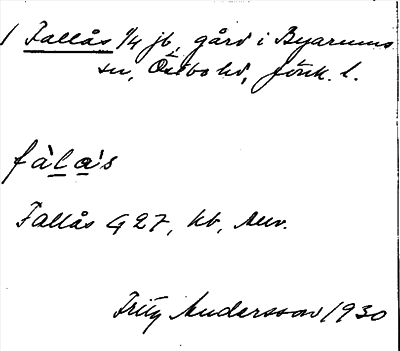 1 Fallås 1/4 jb, gård i Byarums
sn, Östbo hd, Jönk. l.
fàla's
Fallås G 27, kb,
Fritz Andersson 1930